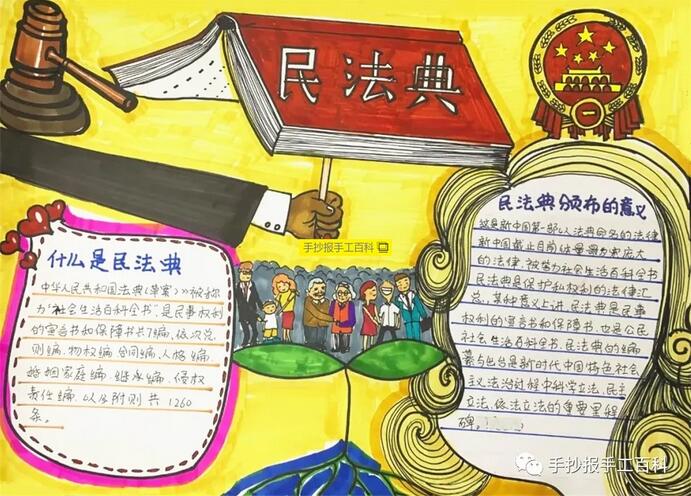 民法典
手抄报手工百科
什么是民法典
中华人民共和国法典(草案)》被称
为"社会生活百科全书"是民事权利
的宣言书和保障书共7编、依次总
则编、物权编、合同编、人格编、
婚姻家庭编、继承编、侵权
责任编、以及附则共1260
条。
民法典颁布的意义
这是新中国第一部以法典命名的法律
新中国截止目前体量最为庞大
的法律,被誉为社会生活百科全书
民法典是保护和权利的法律汇
总,某种意义上讲,民法典是民事
权利的宣言书和保障书,也是公民
社会生活百科全书.民法典的编
纂与出台是新时代中国特色社会主
义法治过解中科学立法,民主
立法、依法立法的重要里程
碑,
手抄报手工百科